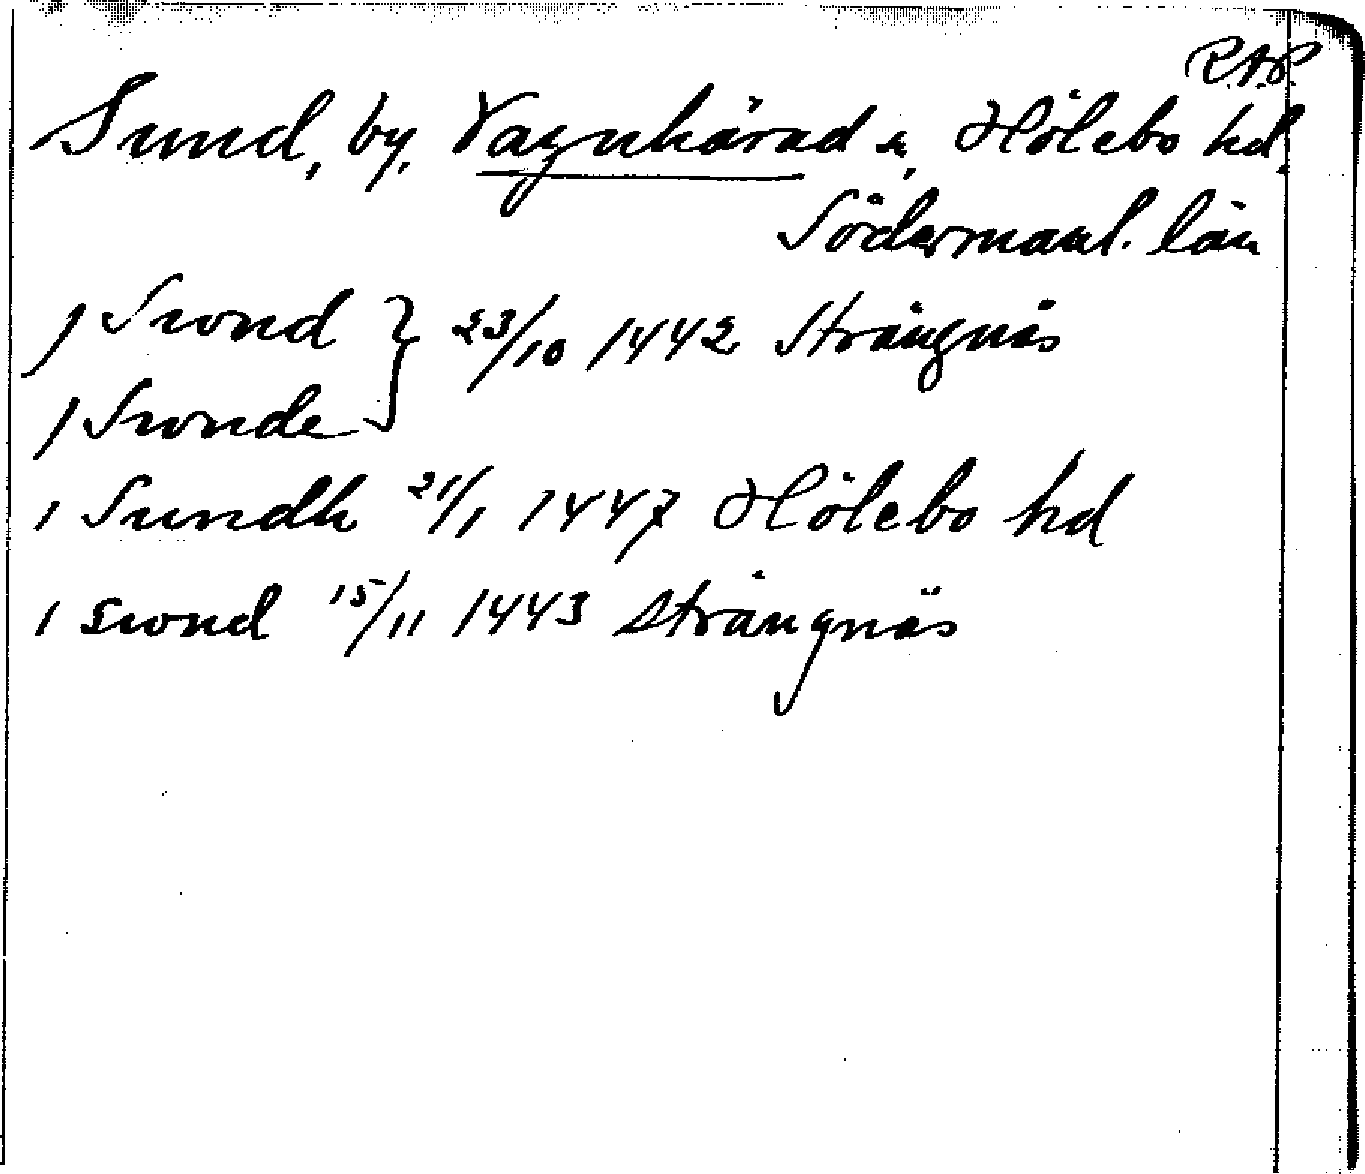 R.A.P.
Sund, by, Vagnhärad s., Hölebo hd,
Södermanl. län
J Swnd } 23/10 1442 Strängnäs
J Swnde
J Sundh 21/1 1447 Hölebo hd
J Swnd 15/11 1443 Strängnäs